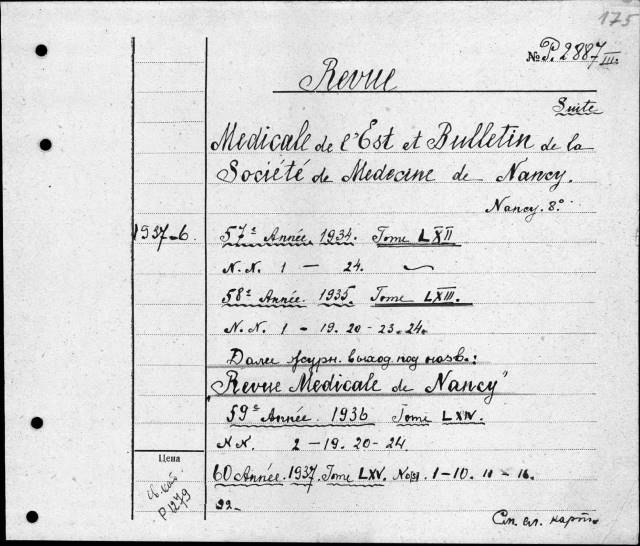 175
№ P. 2887 III
Revue
Suite
Medicale de l'Est et Bulletin de la
Société de Medecine de Nancy.
Nancy. 8.º
1937-6. 57ᵉ Année. 1934. Tome LXII
N.N. 1 — 24.
58ᵉ Année. 1935. Tome LXIII.
N.N. 1 - 19. 20 - 23. 24.
Далее журн. выход. под назв.:
"Revue Medicale de Nancy"
59ᵉ Année. 1936 Tome LXIV.
N.N. 2 - 19. 20 - 24.
Цена
60 Année. 1937. Tome LXV. No(s). 1-10. 11 - 16.
св. кат.
P 1279
22-
См. сл. карт.